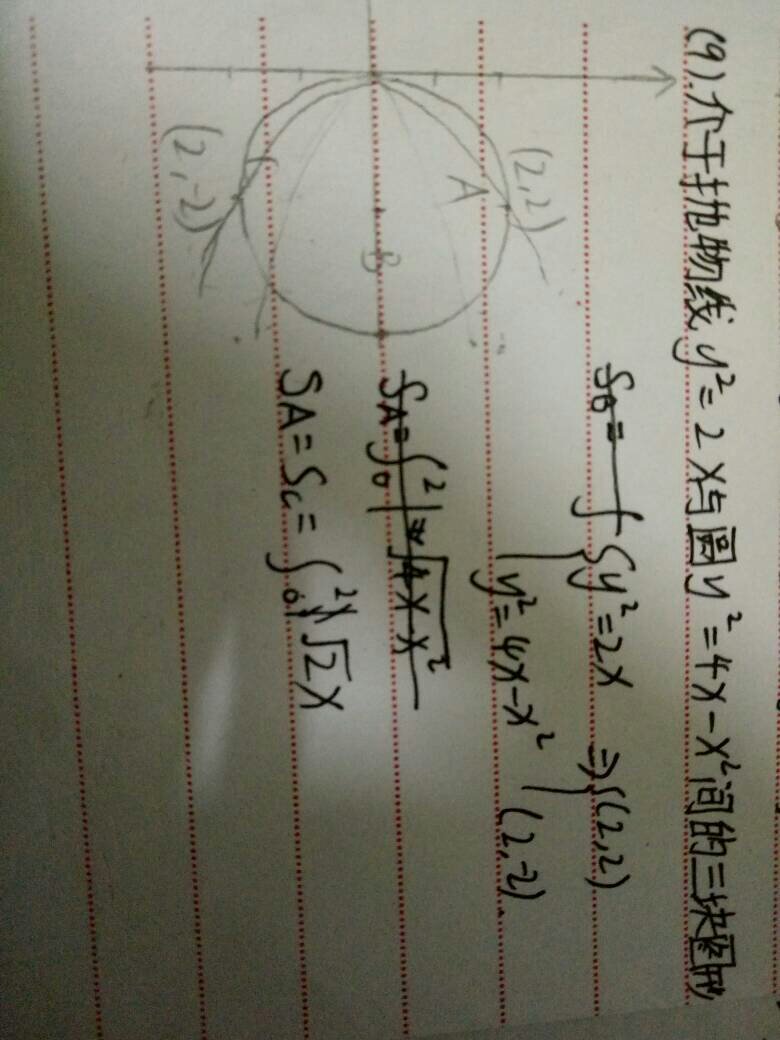 (9).介于抛物线 y²=2x与圆y²=4x-x²间的三块图形
S_B= ∫ {y²=2x ⇒ {(2,2)
{y²=4x-x² (2,-2).
(2,2)
A
B
(2,-2)
S_A=∫₀² √4x-x²
S_A=S_C=∫₀² √2x